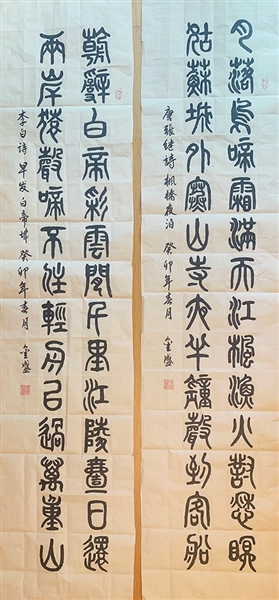 月落烏啼霜滿天江楓漁火對愁眠
姑蘇城外寒山寺夜半鐘聲到客船
唐張継詩楓橋夜泊 癸卯年春月 金盛
朝辭白帝彩雲間千里江陵壹日還
兩岸猿聲啼不住輕舟已過萬重山
李白詩 早发白帝城 癸卯年春月 金盛